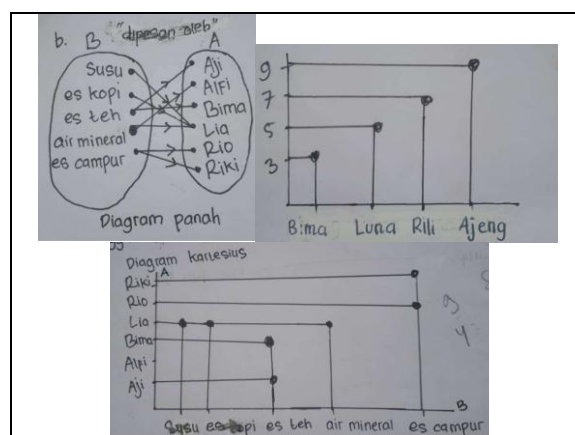 b. B "dipesan oleh" A
Susu
es kopi
es teh
air mineral
es campur
Aji
Alfi
Bima
Lia
Rio
Riki
Diagram panah
9
7
5
3
Bima Luna Rili Ajeng
Diagram kartesius
A
Riki
Rio
Lia
Bima
Alpi
Aji
B
Susu es kopi es teh air mineral es campur
9
4